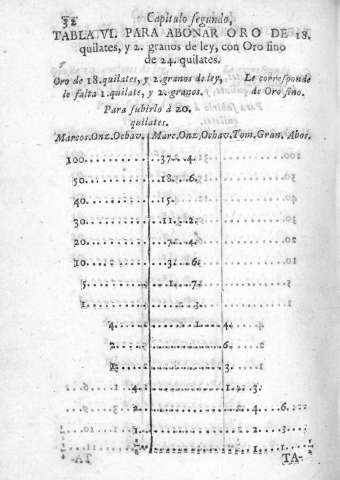 32 Capitulo segundo,
TABLA VI. PARA ABONAR ORO DE 18.
quilates, y 2. granos de ley, con Oro fino
de 24. quilates.
Oro de 18. quilates, y 2. granos de ley, Le corresponde
le falta 1. quilate, y 2. granos. de Oro fino.
Para subirlo à 20.
quilates.
Marcos. Onz. Ochav. Marc. Onz. Ochav. Tom. Gran. Abos.
100. 37. 4.
50. 18. 6.
40. 15.
30. 11. 2.
20. 7. 4.
10. 3. 6.
5. 1. 7.
1. 3.
4. 1. 4.
2. 6.
1. 3.
4. 1. 3.
2. 4. 6.
1. 2. 3.
1. 1.
TA-